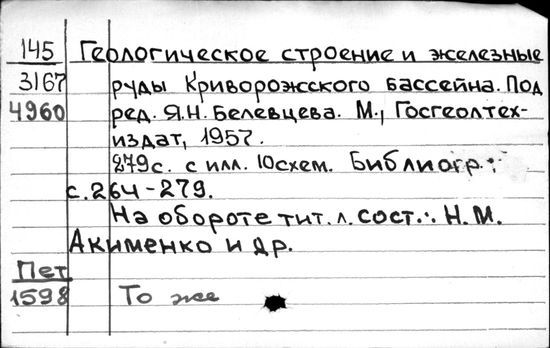 145 Геологическое строение и железные
3167 руды Криворожского бассейна. Под
4960 ред. Я.Н. Белевцева. М., Госгеолтех-
издат, 1957.
279с. с илл. 10схем. Библиогр.:
с.264-279.
На обороте тит. л. сост.: Н.М.
Акименко и др.
Пет
1598 То же